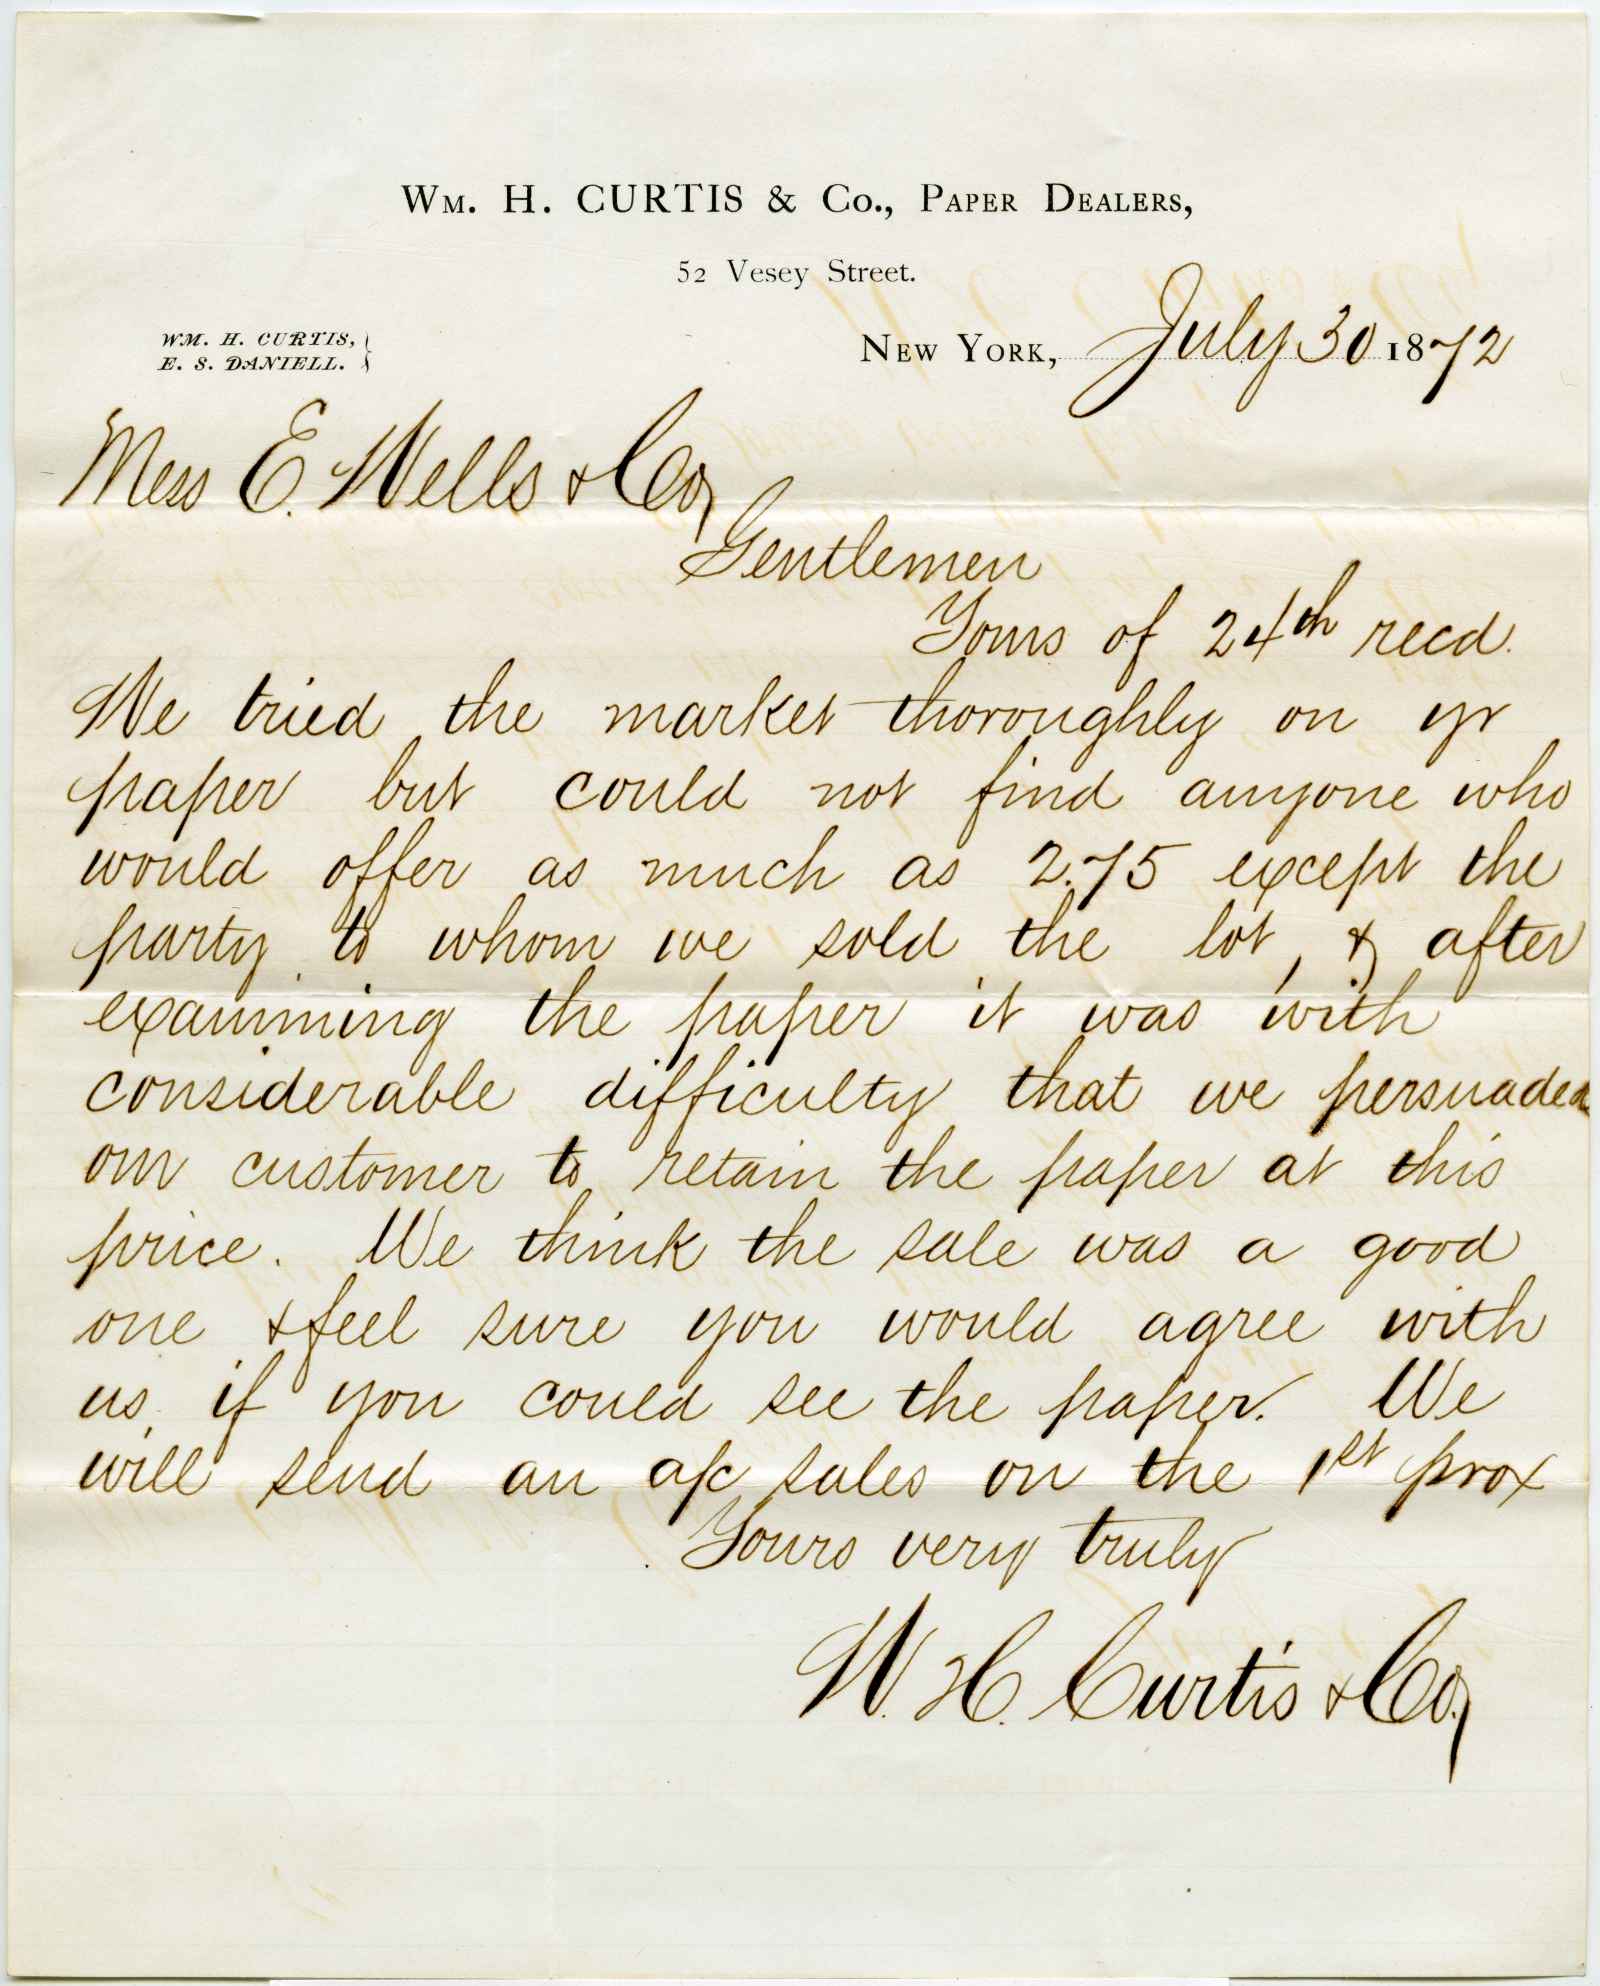 WM. H. CURTIS & CO., PAPER DEALERS,
52 Vesey Street.
WM. H. CURTIS,
E. S. DANIELL.
NEW YORK, July 30 1872
Mess E. Wells & Co,
Gentlemen
Yours of 24th recd.
We tried the market thoroughly on yr
paper but could not find anyone who
would offer as much as 2.75 except the
party to whom we sold the lot, & after
examining the paper it was with
considerable difficulty that we persuaded
our customer to retain the paper at this
price. We think the sale was a good
one & feel sure you would agree with
us if you could see the paper. We
will send an a/c sales on the 1st prox
Yours very truly
W. H. Curtis & Co,